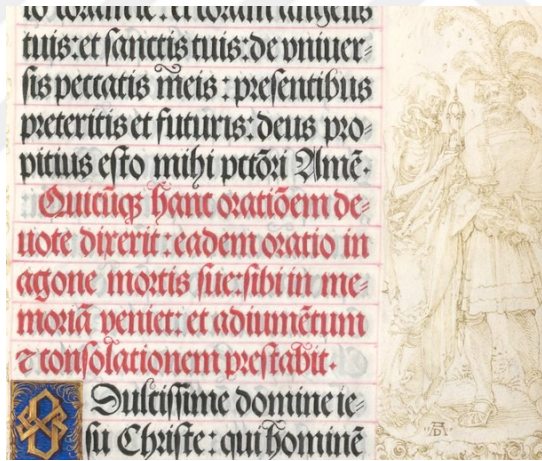 tuis:et sanctis tuis:de vniuer=
sis peccatis meis : presentibus
preteritis et futuris: deus pro=
pitius esto mihi pctōri Amē.
Quicūqꝫ hanc oratiōem de=
uote dixerit : eadem oratio in
agone mortis sue:sibi in me=
moriā veniet: et adiumētum
⁊ consolationem prestabit.
O Dulcissime domine ie=
su Christe: qui hominē
AD